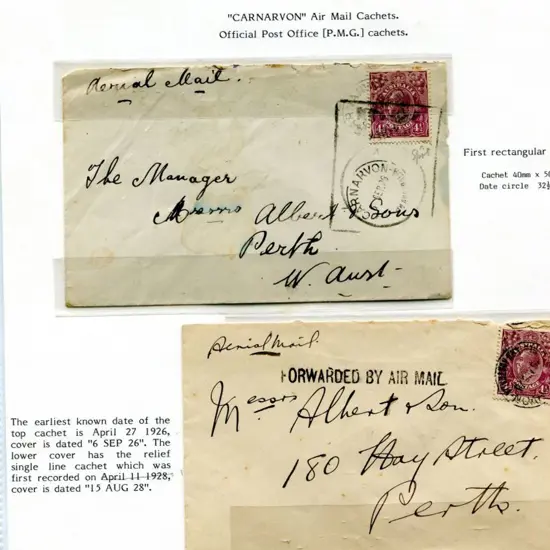 "CARNARVON" Air Mail Cachets.
Official Post Office [P.M.G.] cachets.
Aerial Mail.
4½
CARNARVON-
The Manager
Messrs Albert & Sons
Perth
W. Aust-
First rectangular
Cachet 40mm x 50
Date circle 32½
Aerial Mail.
FORWARDED BY AIR MAIL
Messrs Albert & Son.
180 Hay Street.
Perth.
The earliest known date of the
top cachet is April 27 1926,
cover is dated "6 SEP 26". The
lower cover has the relief
single line cachet which was
first recorded on April 11 1928,
cover is dated "15 AUG 28".